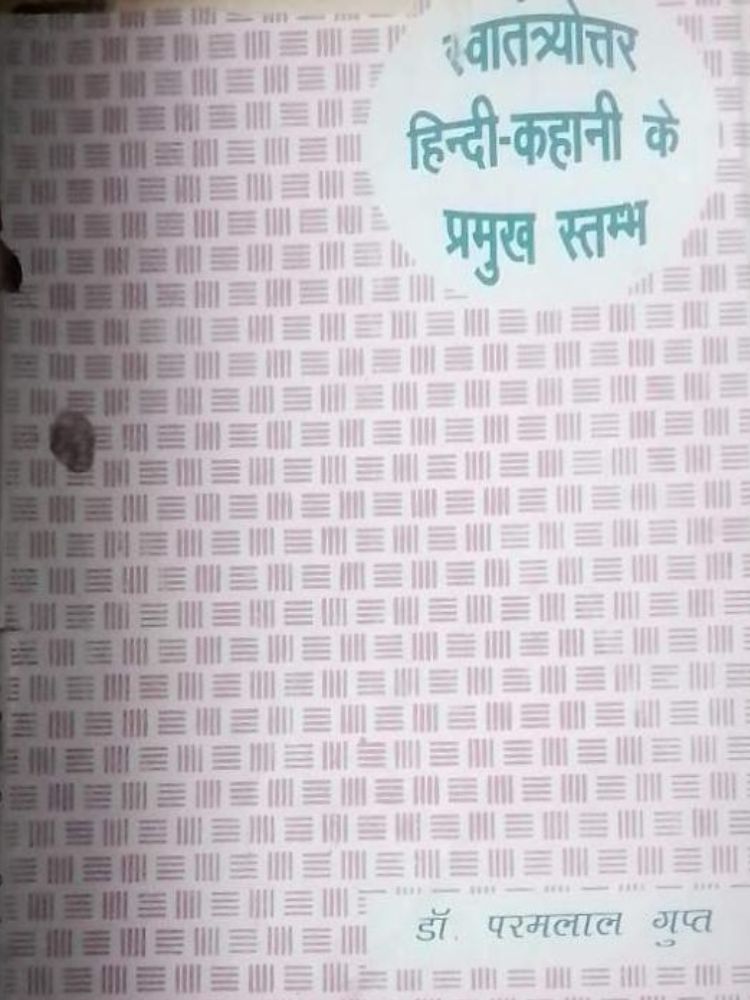 स्वातंत्र्योत्तर
हिन्दी-कहानी के
प्रमुख स्तम्भ
डॉ. परमलाल गुप्त